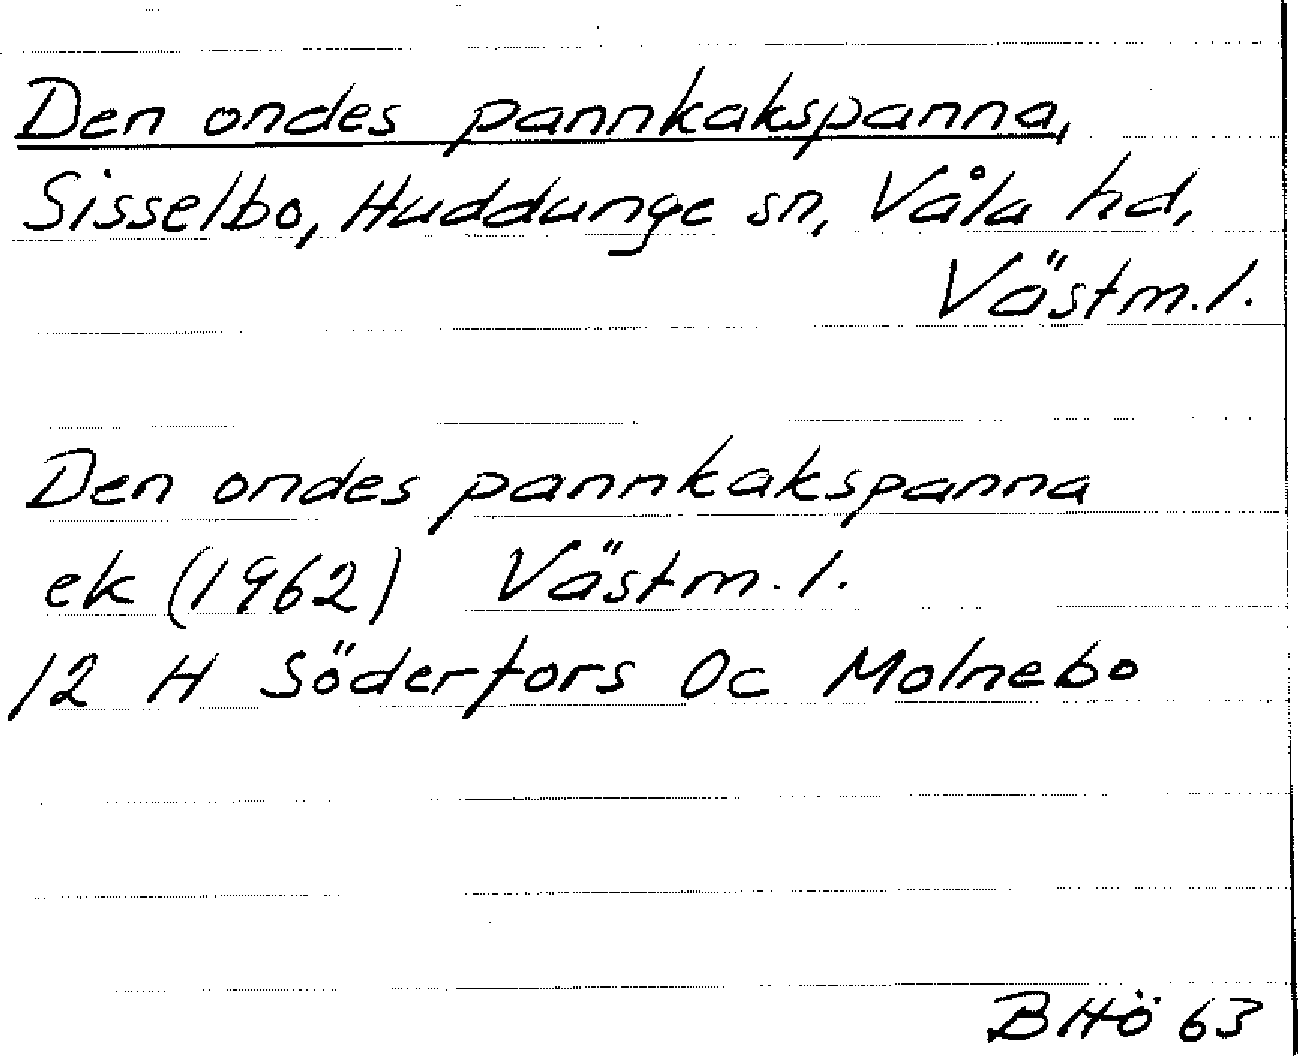 Den ondes pannkakspanna,
Sisselbo, Huddunge sn, Våla hd,
Västm. l.
Den ondes pannkakspanna
ek (1962) Västm. l.
12 H Söderfors 0c Molnebo
BHÖ 63